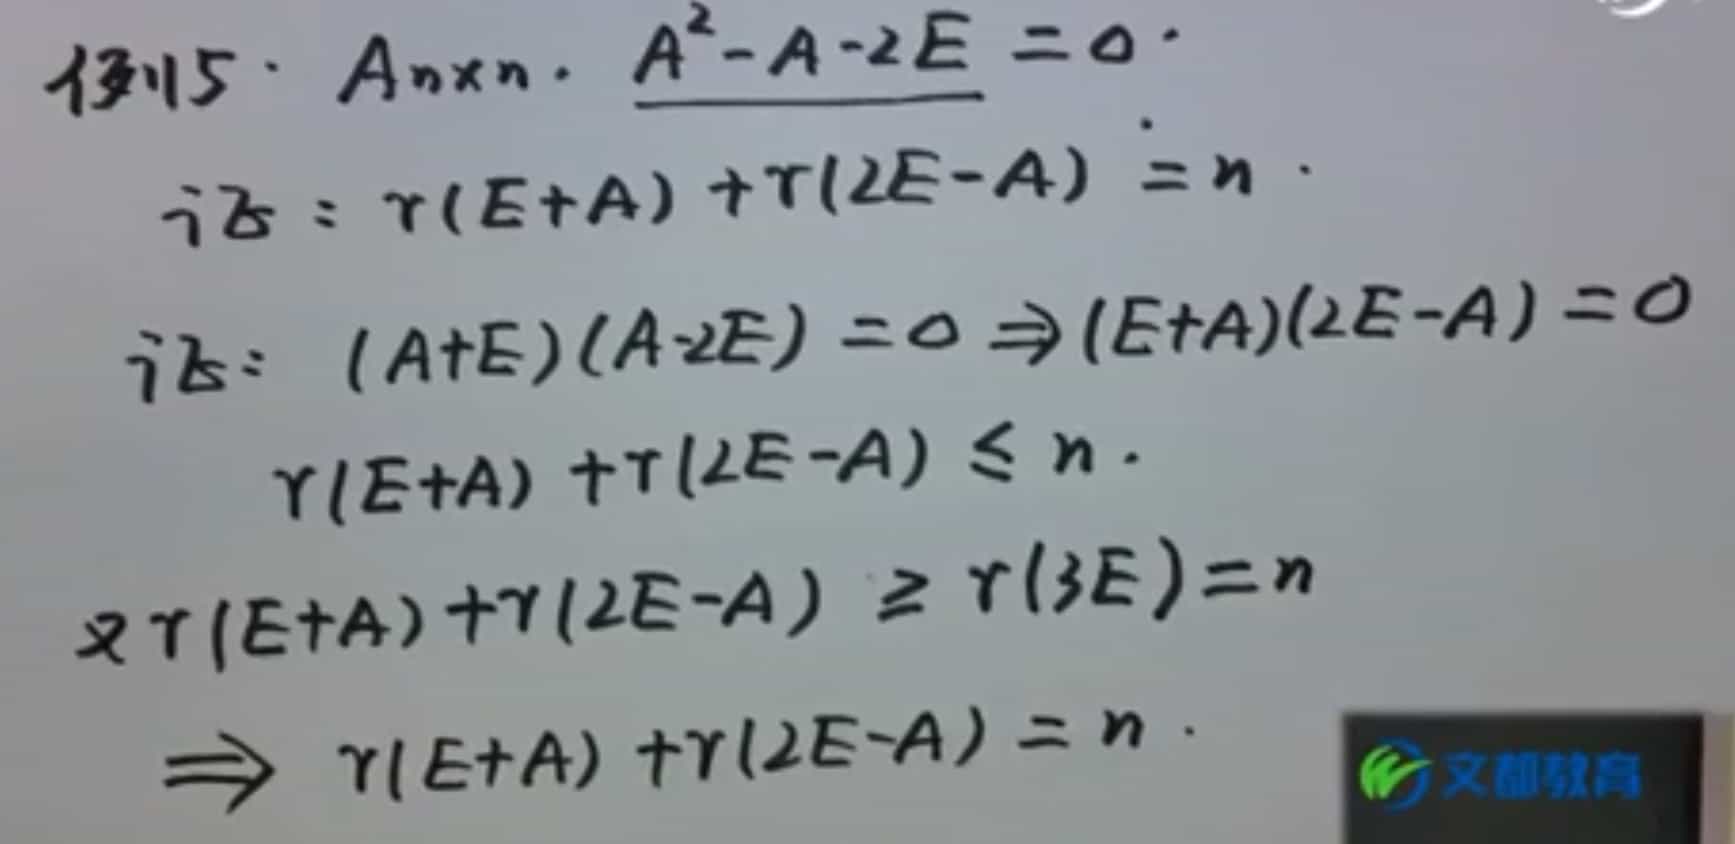 例15. Aₙₓₙ. A²-A-2E=0.
证: r(E+A)+r(2E-A)=n.
证: (A+E)(A-2E)=0⇒(E+A)(2E-A)=0
r(E+A)+r(2E-A)≤n.
又r(E+A)+r(2E-A)≥r(3E)=n
⇒ r(E+A)+r(2E-A)=n.
文都教育